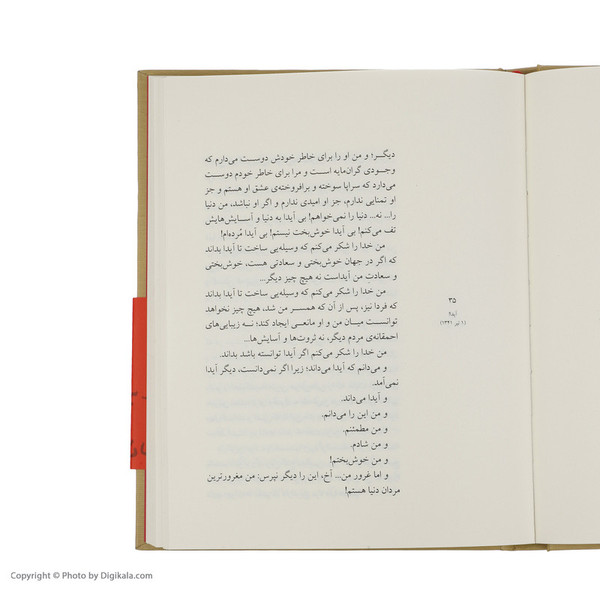 دیگر؛ و من او را برای خاطر خودش دوست می‌دارم که
وجودی گران‌مایه است و مرا برای خاطر خودم دوست
می‌دارد که سراپا سوخته و برافروخته‌ی عشق او هستم و جز
او تمنایی ندارم، جز او امیدی ندارم و اگر او نباشد، من دنیا
را... نه... دنیا را نمی‌خواهم! بی آیدا به دنیا و آسایش‌هایش
تف می‌کنم! بی آیدا خوش‌بخت نیستم! بی آیدا مُرده‌ام!
من خدا را شکر می‌کنم که وسیله‌یی ساخت تا آیدا بداند
که اگر در جهان خوش‌بختی و سعادتی هست، خوش‌بختی
و سعادتِ من آیداست نه هیچ چیز دیگر.
من خدا را شکر می‌کنم که وسیله‌یی ساخت تا آیدا بداند
که فردا نیز، پس از آن که همسر من شد، هیچ چیز نخواهد
توانست میان من و او مانعی ایجاد کند؛ نه زیبایی‌های
احمقانه‌ی مردم دیگر، نه ثروت‌ها و آسایش‌ها...
من خدا را شکر می‌کنم اگر آیدا توانسته باشد بداند.
و می‌دانم که آیدا می‌داند؛ زیرا اگر نمی‌دانست، دیگر آیدا
نمی‌آمد.
و آیدا می‌داند.
و من این را می‌دانم.
و من مطمئنم.
و من شادم.
و من خوش‌بختم!
و اما غرور من... آخ، این را دیگر نپرس: من مغرورترین
مردان دنیا هستم!
۳۵
آیدا!
(۱ تیر ۱۳۴۱)
Copyright © Photo by Digikala.com